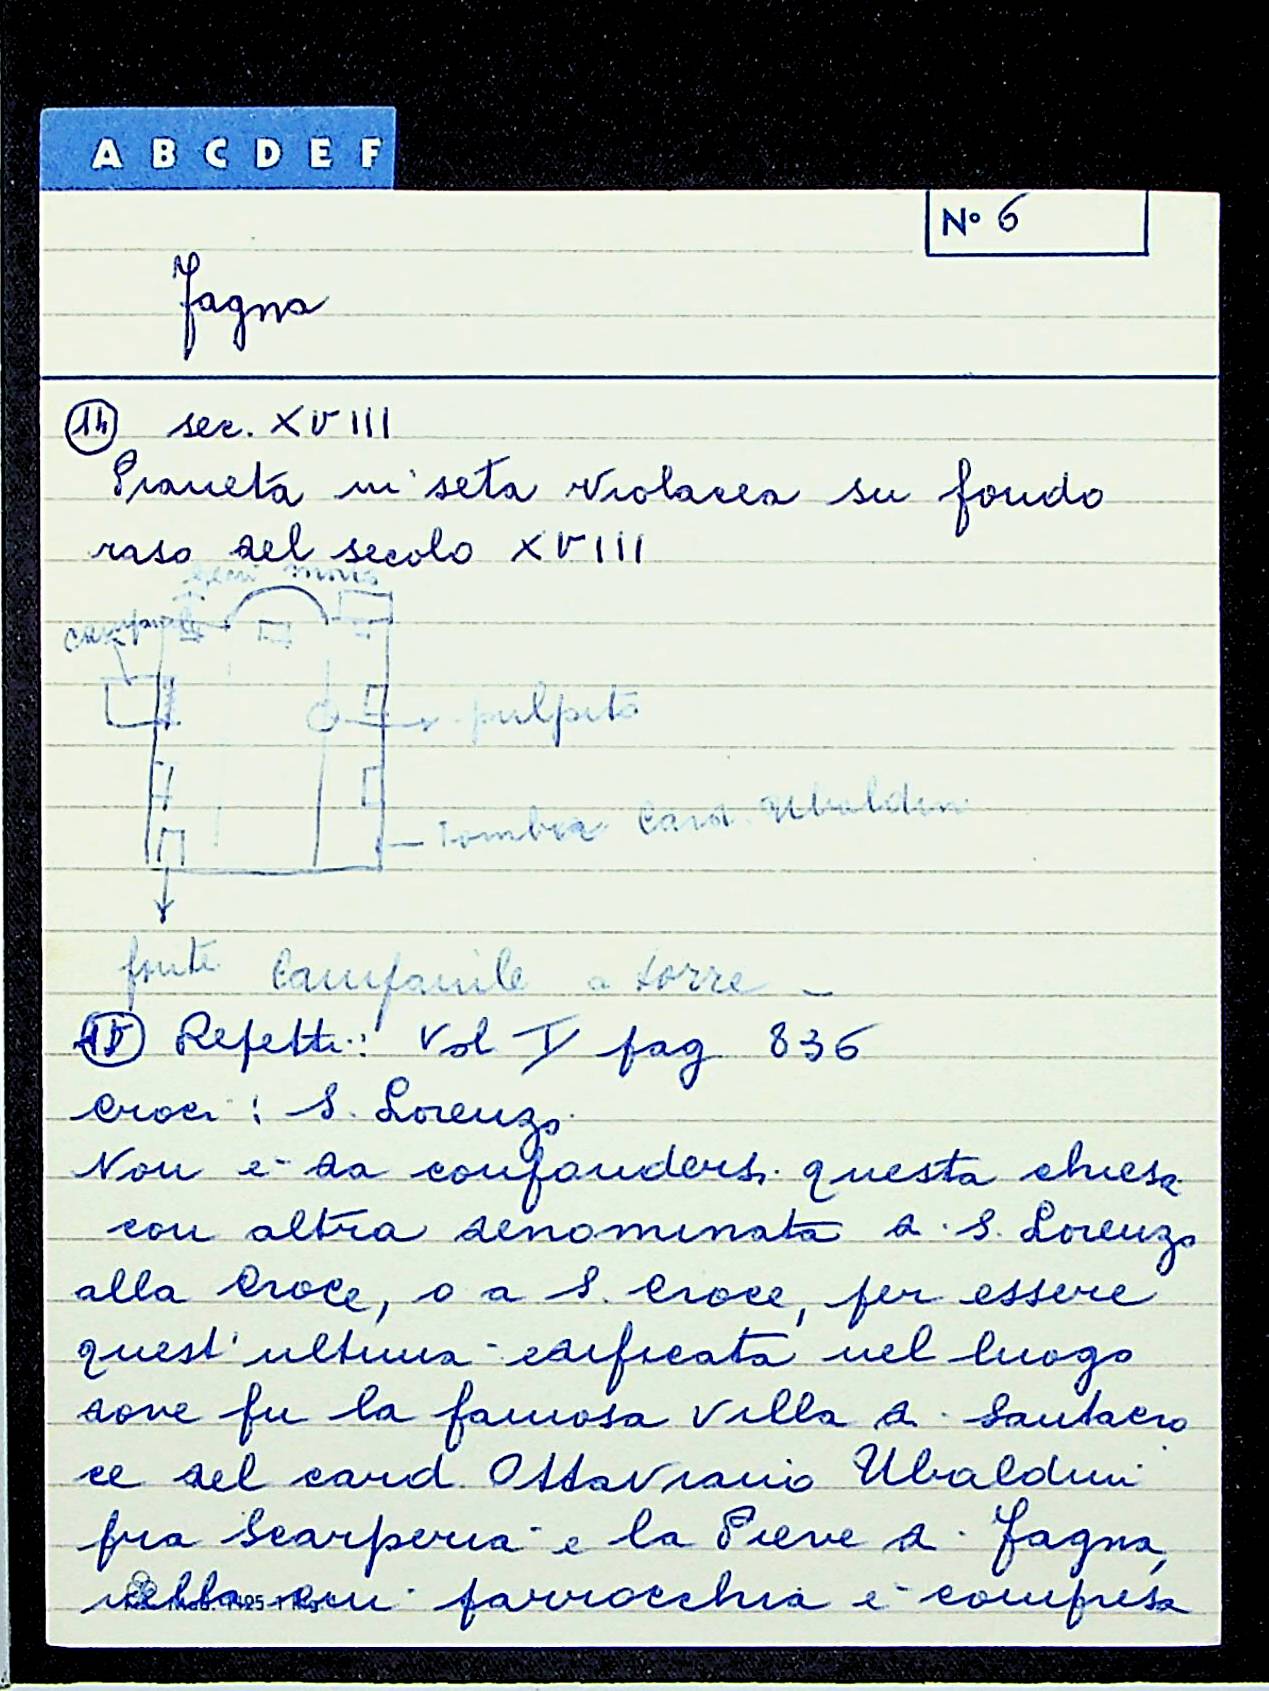 A B C D E F
Nº 6
Fagna
14 sec. XVIII
Pianeta in seta violacea su fondo
raso del secolo XVIII
campanile
pulpito
Tomba Card. Ubaldini
fonte Campanile a torre -
15 Repetti: Vol V pag 836
Croci: S. Lorenzo
Non è da confondersi questa chiesa
con altra denominata di S. Lorenzo
alla Croce, o a S. Croce, per essere
quest'ultima edificata nel luogo
dove fu la famosa villa di Santacro
ce del card. Ottaviano Ubaldini
fra Scarperia e la Pieve di Fagna,
nella cui parrocchia è compresa